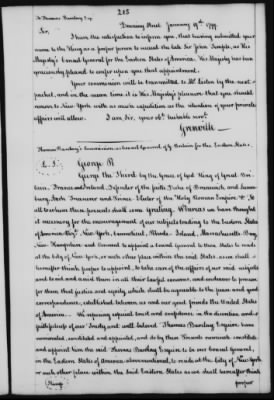 215
To Thomas Barclay Esq.
Downing Street January 19th 1799.
Sir,
I have the satisfaction to inform you, that having submitted your
name to the King as a proper person to succeed the late Sir John Temple, as His
Majesty's Consul General for the Eastern States of America, His Majesty has been
graciously pleased to confer upon you that appointment.
Your commission will be transmitted to Mr. Liston by the next
packet, and in the mean time it is His Majesty's pleasure that you should
return to New York with as much expedition as the situation of your private
affairs will allow. I am, Sir, your obt. humble servt.
Grenville
Thomas Barclay's Commission as Consul General of G. Britain for the Eastern States.
L. S. George R
George the Third by the Grace of God King of Great Bri-
tain, France and Ireland, Defender of the faith, Duke of Brunswick and Lunen-
burg, Arch Treasurer and Prince Elector of the Holy Roman Empire &c. To
all to whom these presents shall come Greeting. Whereas we have thought
it necessary for the encouragement of our subjects trading to the Eastern States
of America, New York, Connecticut, Rhode Island, Massachusetts Bay,
New Hampshire and to appoint a Consul General to these States to reside
at the City of New York, or such other place within the said States as we shall
hereafter think proper to appoint, to take care of the affairs of our said subjects
and to aid and assist them in all their lawful concerns and endeavor to procure
for them that justice and equity which shall be agreeable to the peace and good
correspondence, established between us and our good friends the United States
of America. We reposing especial trust and confidence in the discretion and
faithfulness of our Trusty and well beloved Thomas Barclay Esquire have
nominated, constituted and appointed, and do by these Presents nominate, constitute
and appoint him the said Thomas Barclay Esquire to be our Consul General,
in the Eastern States of America abovementioned, to reside at the City of New York
or such other place within the said Eastern States as we shall hereafter think
proper